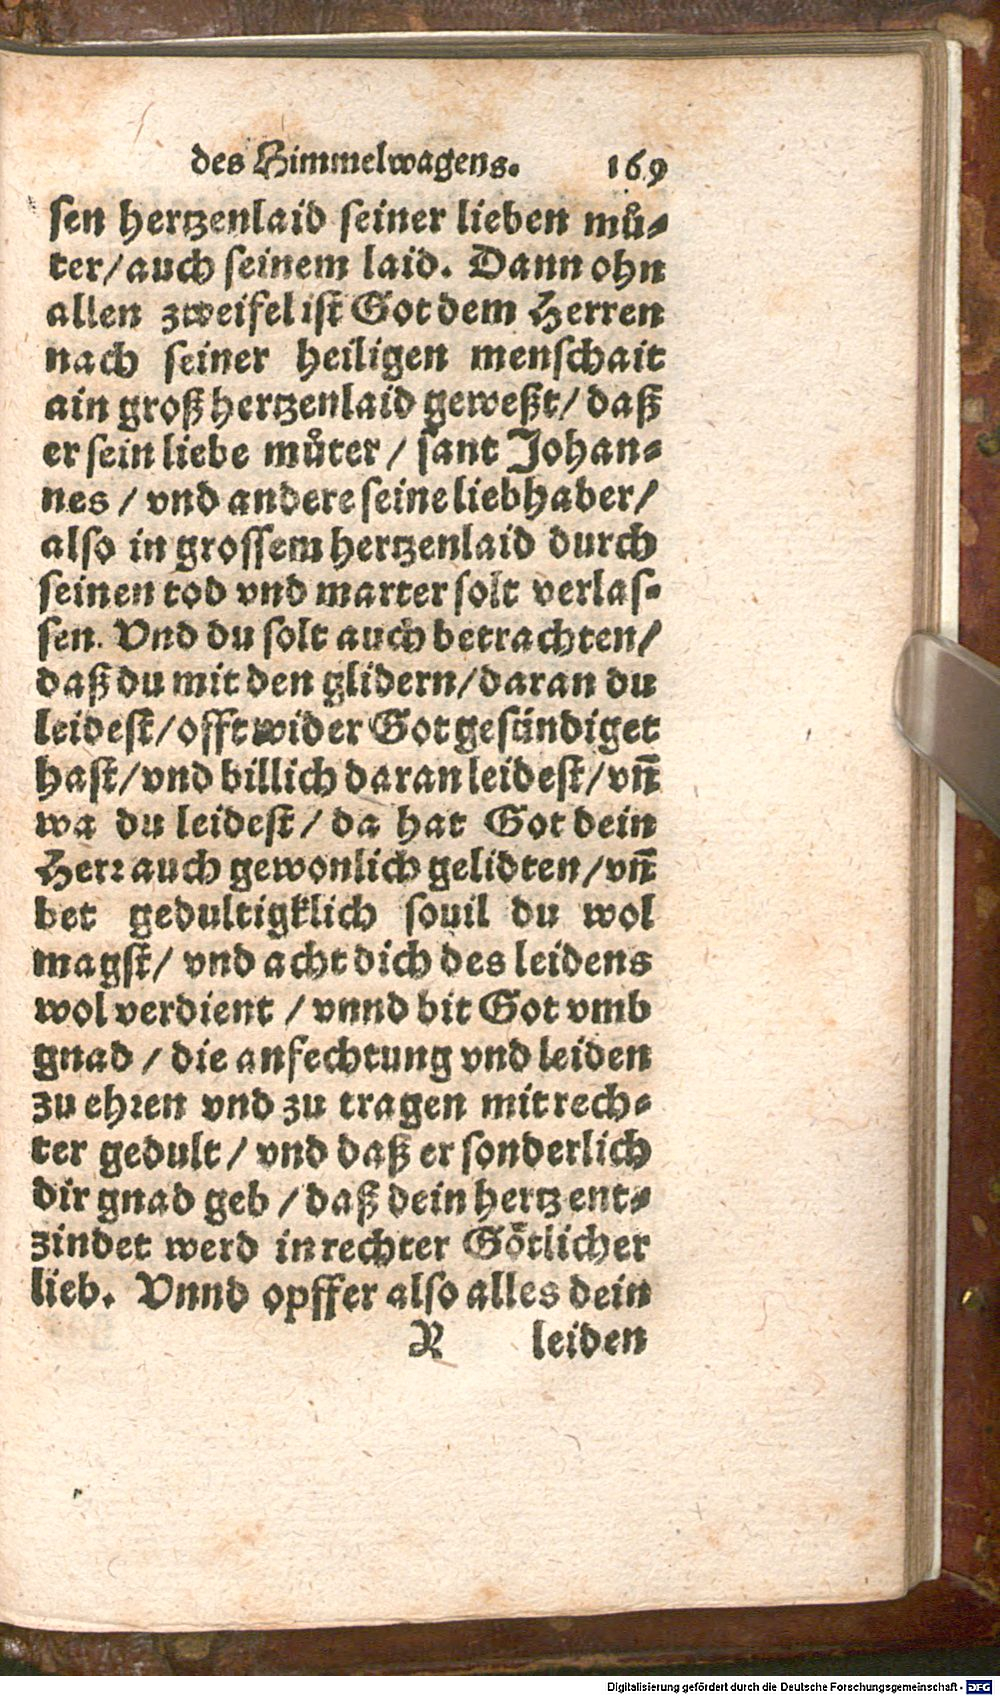 des Himmelwagens. 169
sen hertzenlaid seiner lieben můͤ-
ter/ auch seinem laid. Dann ohn
allen zweifel ist Got dem Herren
nach seiner heiligen menschait
ain groß hertzenlaid geweßt/ daß
er sein liebe můter / sant Johan-
nes / vnd andere seine liebhaber/
also in grossem hertzenlaid durch
seinen tod vnd marter solt verlas-
sen. Vnd du solt auch betrachten/
daß du mit den glidern/ daran du
leidest/ offt wider Got gesündiget
hast/ vnd billich daran leidest/ vñ
wa du leidest/ da hat Got dein
Herr auch gewonlich gelidten/ vñ
bet gedultigklich souil du wol
magst/ vnd acht dich des leidens
wol verdient / vnnd bit Got vmb
gnad / die anfechtung vnd leiden
zu ehren vnd zu tragen mit rech-
ter gedult / vnd daß er sonderlich
dir gnad geb / daß dein hertz ent-
zindet werd in rechter Götlicher
lieb. Vnnd opffer also alles dein
R leiden
Digitalisierung gefördert durch die Deutsche Forschungsgemeinschaft - DFG